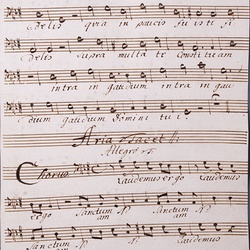 delis quia in pauca fuisti fi
delis supra multa te constituam
intra in gaudium intra in gau
dium gaudium Domini tui.
Aria Tacet
Allegro
Chorus Laudemus ergo Laudemus
ergo Sanctum Sanctum
am am
Sanctum
am